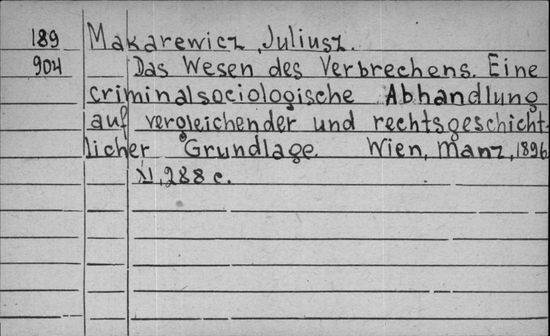 189 Makarewicz, Juliusz.
904 Das Wesen des Verbrechens. Eine
criminalsociologische Abhandlung
auf vergleichender und rechtsgeschicht-
licher Grundlage. Wien, Manz, 1896.
XI, 288 c.